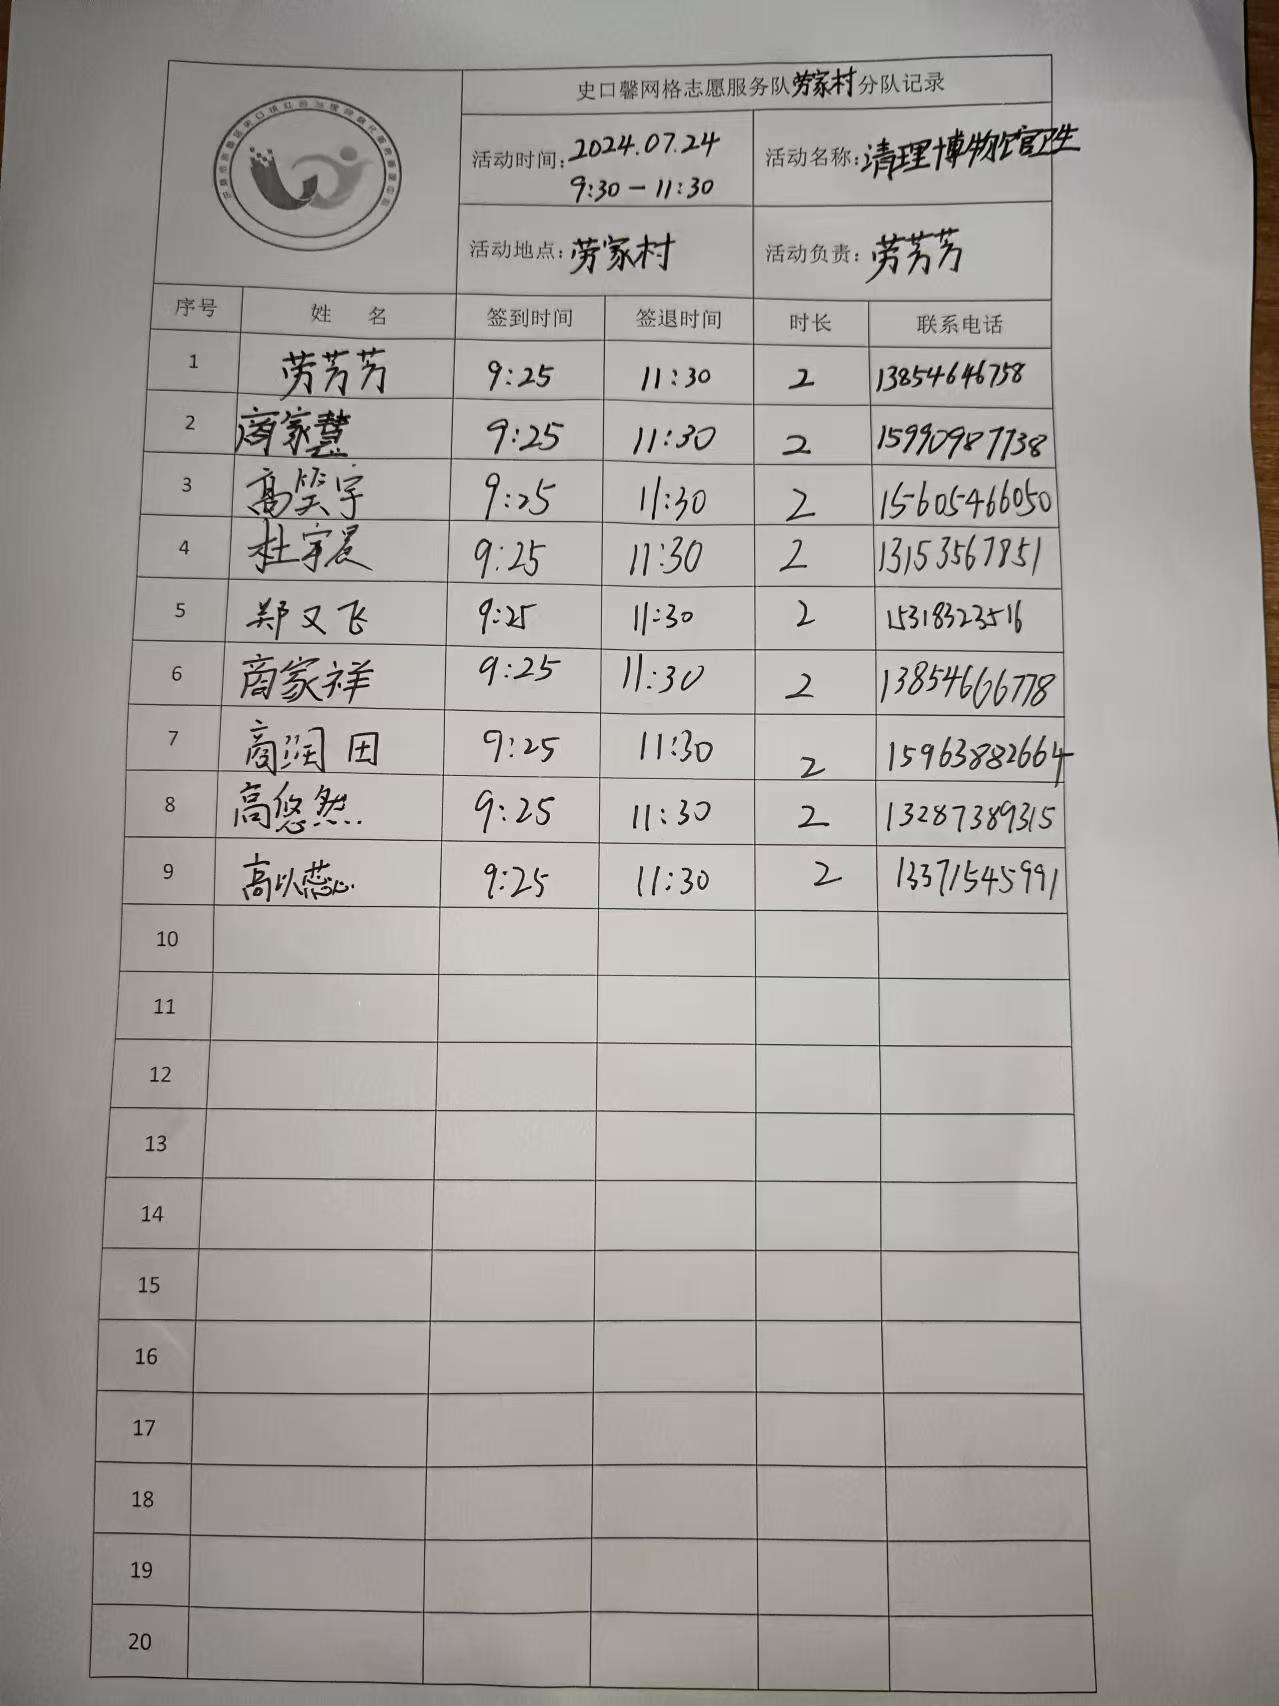 史口馨网格志愿服务队劳家村分队记录
活动时间: 2024.07.24
9:30-11:30
活动名称: 清理博物馆卫生
活动地点: 劳家村
活动负责: 劳芳芳
序号 姓 名 签到时间 签退时间 时长 联系电话
1 劳芳芳 9:25 11:30 2 13854646758
2 商家慧 9:25 11:30 2 15990987738
3 高笑宇 9:25 11:30 2 15605466050
4 杜宇晨 9:25 11:30 2 13153567851
5 郑又飞 9:25 11:30 2 15318323516
6 商家祥 9:25 11:30 2 13854666778
7 商润田 9:25 11:30 2 15963882664
8 高悠然 9:25 11:30 2 13287389315
9 高以蕊 9:25 11:30 2 13371545991
10
11
12
13
14
15
16
17
18
19
20